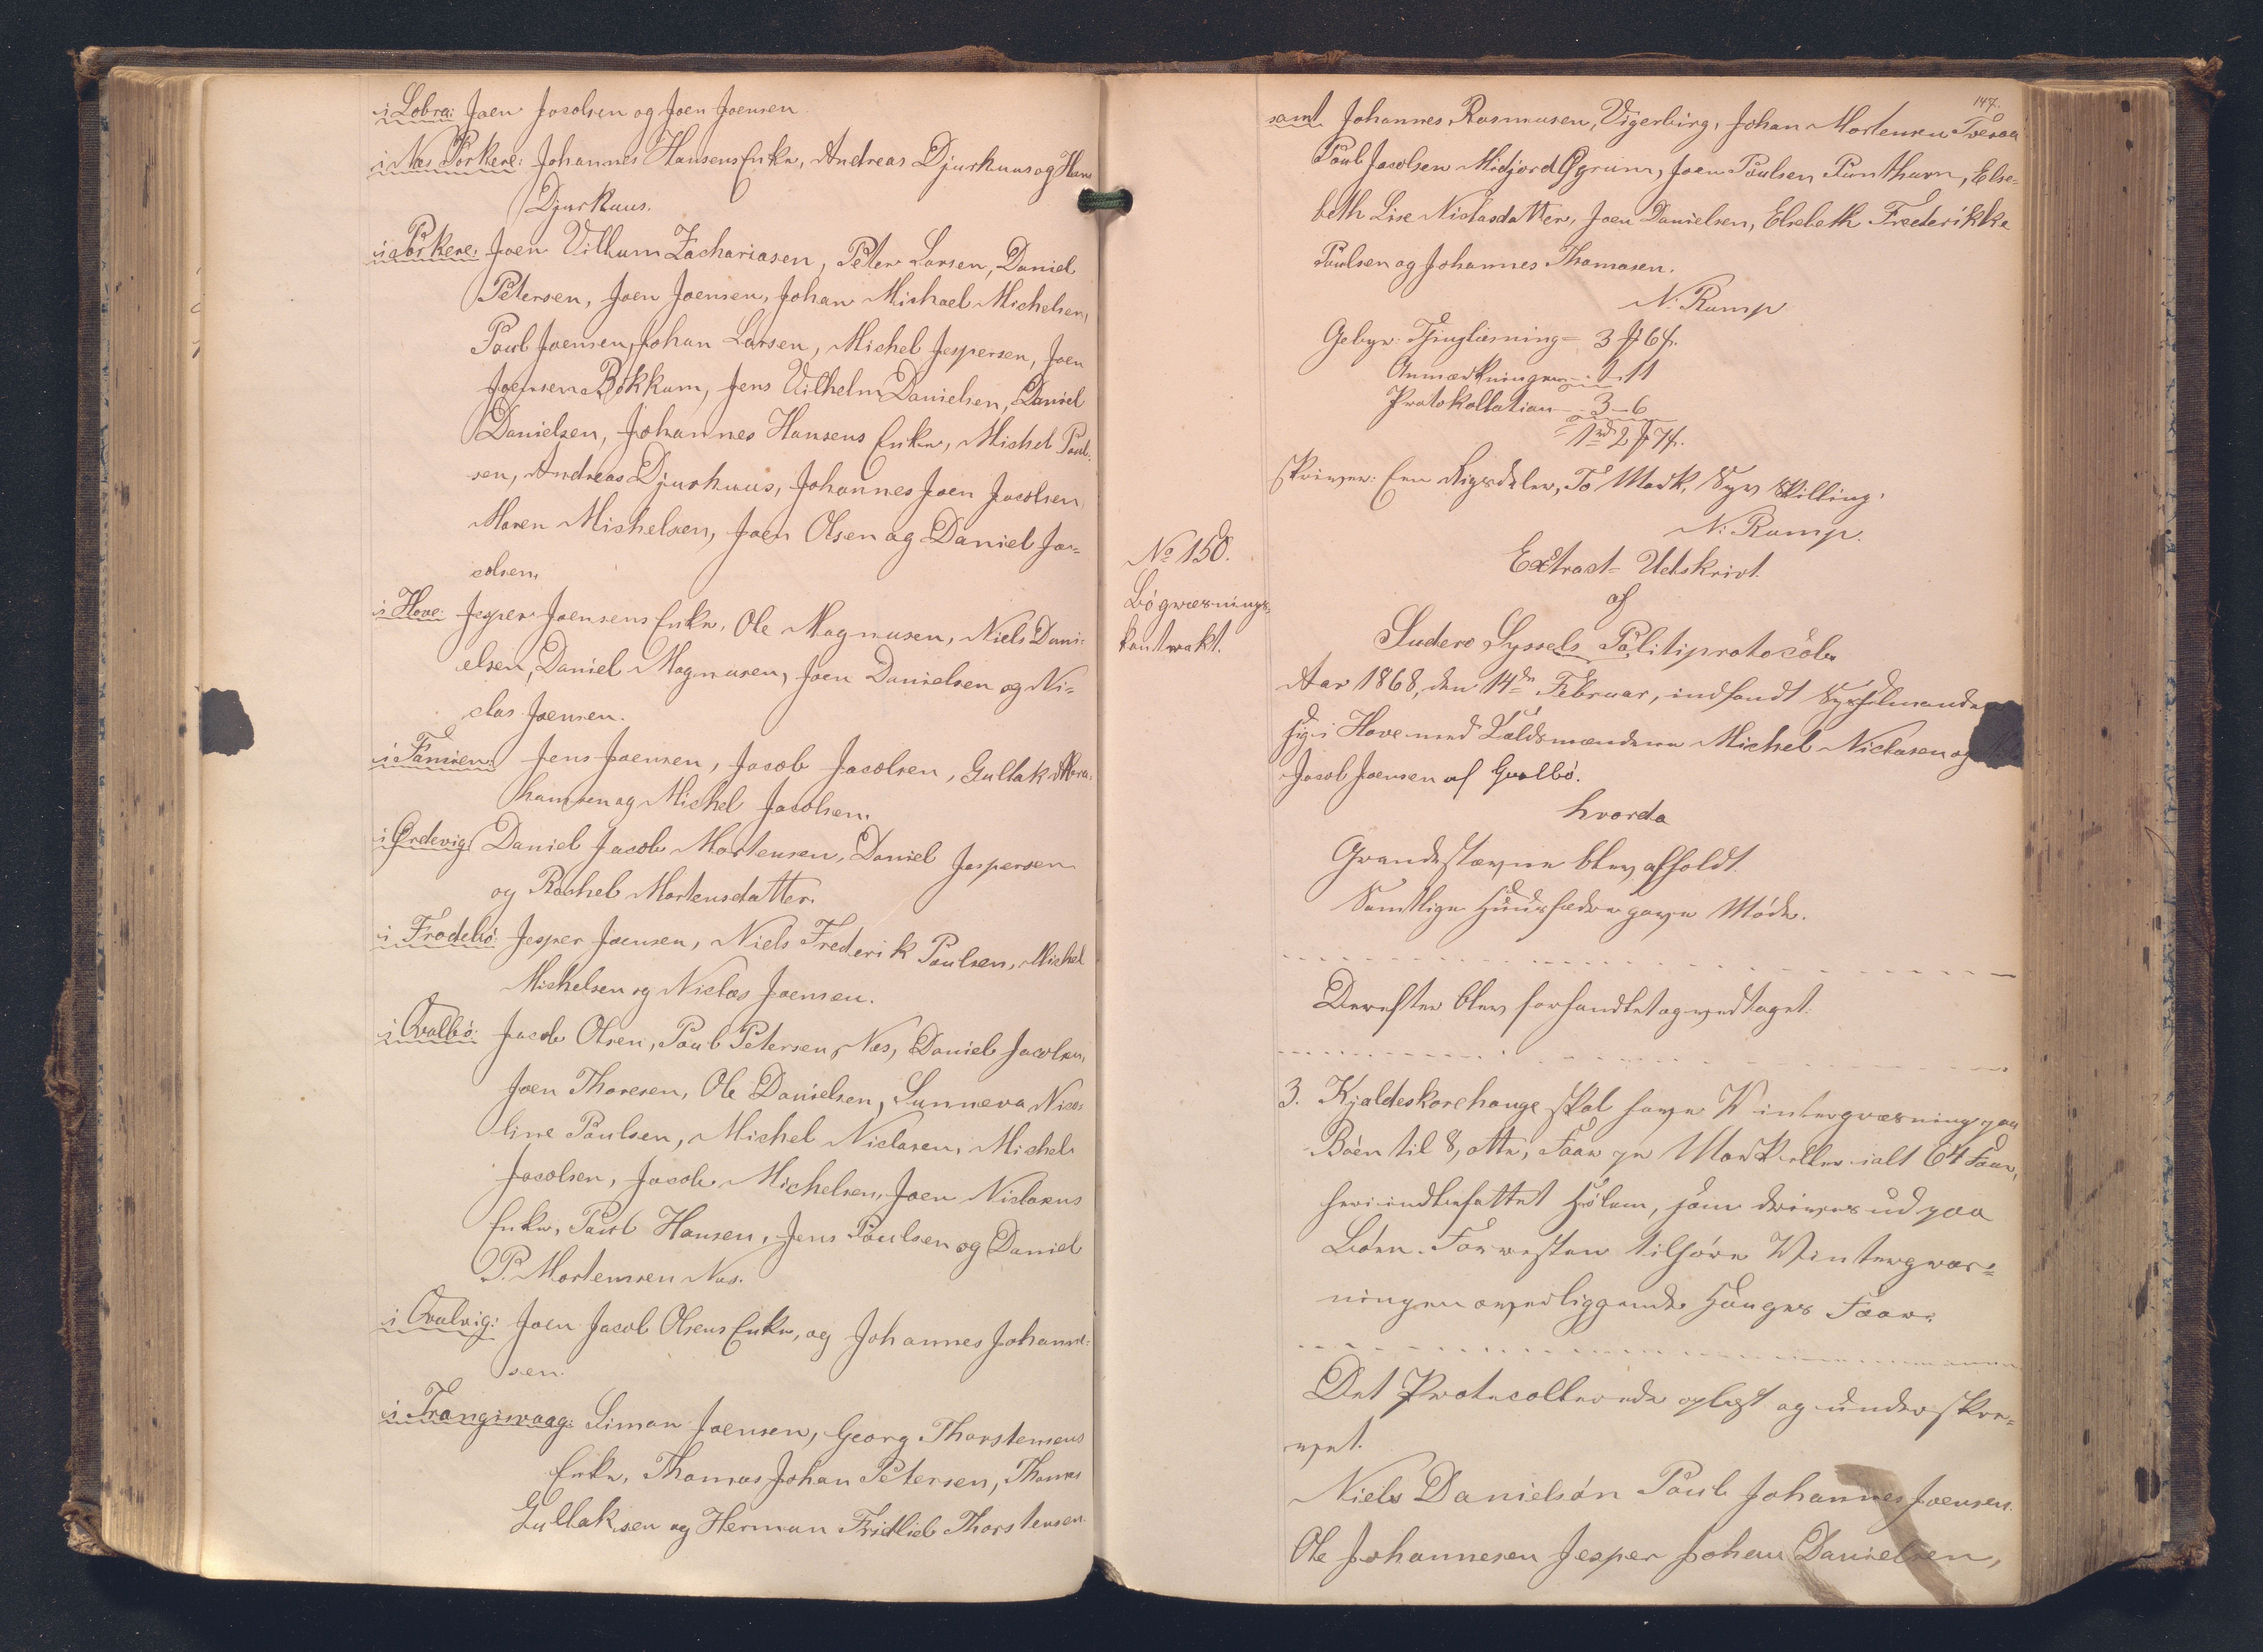 i Lobra: Joen Jacobsen og Joen Joensen
i Nes Porkere: Johannes Hansens Enke, Andreas Djurhuus og Hans
Djurhuus.
i Porkere: Joen Vilhum Zachariasen, Peter Larsen, Daniel
Petersen, Joen Joensen, Johan Michael Michelsen,
Poul Joensen, Johan Larsen, Michel Jespersen, Joen
Joensen Bókkum, Jens Vilhelm Danielsen, Daniel
Danielsen, Johannes Hansens Enke, Michel Poul-
sen, Andreas Djurhuus, Johannes Joen Jacobsen,
Maren Michelsen, Joen Olsen og Daniel Ja-
cobsen.
i Hove: Jesper Joensens Enke, Ole Magnusen, Niels Dani-
elsen, Daniel Magnusen, Joen Danielsen og Ni-
clas Joensen.
i Famien: Jens Joensen, Jacob Jacobsen, Gullak Abra-
hamsen og Michel Jacobsen.
i Ørdevig: Daniel Jacob Mortensen, Daniel Jespersen
og Rachel Mortensdatter.
i Frodebó: Jesper Joensen, Niels Frederik Poulsen, Michel
Michelsen og Niclas Joensen.
i Qvalbó: Jacob Olsen, Poul Petersen, Nes, Daniel Jacobsen,
Joen Thoresen, Ole Danielsen, Sunneva Nico-
line Poulsen, Michel Niclasen, Michel
Jacobsen, Jacob Michelsen, Joen Niclasens
Enke, Poul Hansen, Jens Poulsen og Daniel
P. Mortensen Nes.
i Qvalvig: Joen Jacob Olsens Enke, og Johannes Johanne-
sen.
i Trangisvaag: Simon Joensen, Georg Thorstensens
Enke, Thomas Johan Petersen, Thomas
Gullaksen og Herman Fridlieb Thorstensen
147.
samt Johannes Rasmusen, Vigerbirg, Johan Mortensen Tveraa
Poul Jacobsen Midjord Øgrum, Joen Poulsen Punthavn, Else-
beth Lise Niclasdatter, Joen Danielsen, Elsebeth Frederikke
Poulsen og Johannes Thomasen.
N. Rump
Gebyr: Thinglæsning = 3 ₻ 6 ß.
Anmærkningen - 1 - 11
Protokollation - 3 - 6
1 rd 2 ₻ 7 ß.
skriver: Een Rigsdaler, To Mark, Syv Skilling.
N. Rump.
No 150.
Bógræsnings-
kontrakt.
Extract-Udskrivt
af
Suderó Syssels Politiprotocol
Aar 1868, den 14de Februar, indfandt Sysselmanden
sig i Hove med Laldsmændene Michel Niclasen og
Jacob Joensen af Qvalbó.
hvorda
Grandestævne blev afholdt.
Samtlige Huusfædre gave Móde.
Derefter blev forhandlet og vedtaget:
3. Kjældeskorehauge skal have Vintergræsning paa
Bóen til 8, otte, Faar pr Mark eller ialt 64 Faar,
heri indbefattet Hólam, som drives ud paa
Bóen. Foruden tilhóre Vintergræs-
ningen overliggende Hauges Faar.
Det Protocollerede oplæst og underskre-
vet.
Niels Danielsón Poul Johannes Joensen.
Ole Johannesen Jesper Johan Danielsen,